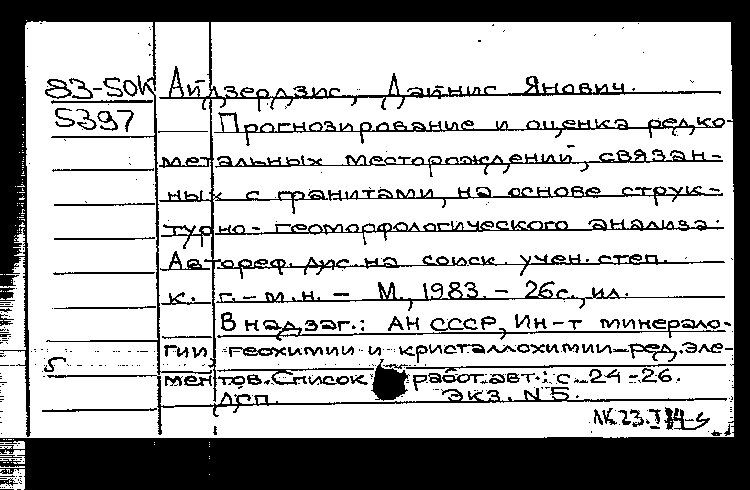 83-50К Айдзердзис, Дайнис Янович.
5397 Прогнозирование и оценка редко-
метальных месторождений, связан-
ных с гранитами, на основе струк-
турно-геоморфологического анализа:
Автореф. дис. на соиск. учен. степ.
к. г.-м.н. - М., 1983. - 26с., ил.
В надзаг.: АН СССР, Ин-т минерало-
гии, геохимии и кристаллохимии ред. эле-
5
ментов. Список работ авт.: с. 24-26.
ДСП. Экз. N 5.